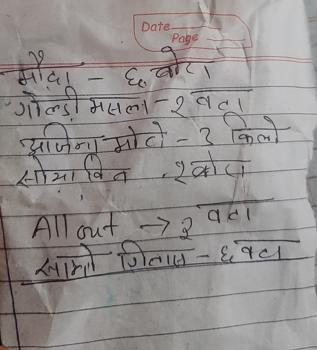 Date
Page
मैदा - ६ बोरा
गोल्डी मसला - २ वटा
अजिना मोटो - ३ किलो
सोया विन १ बोरा
All out → २ वटा
खाजो गिलास - ६ वटा